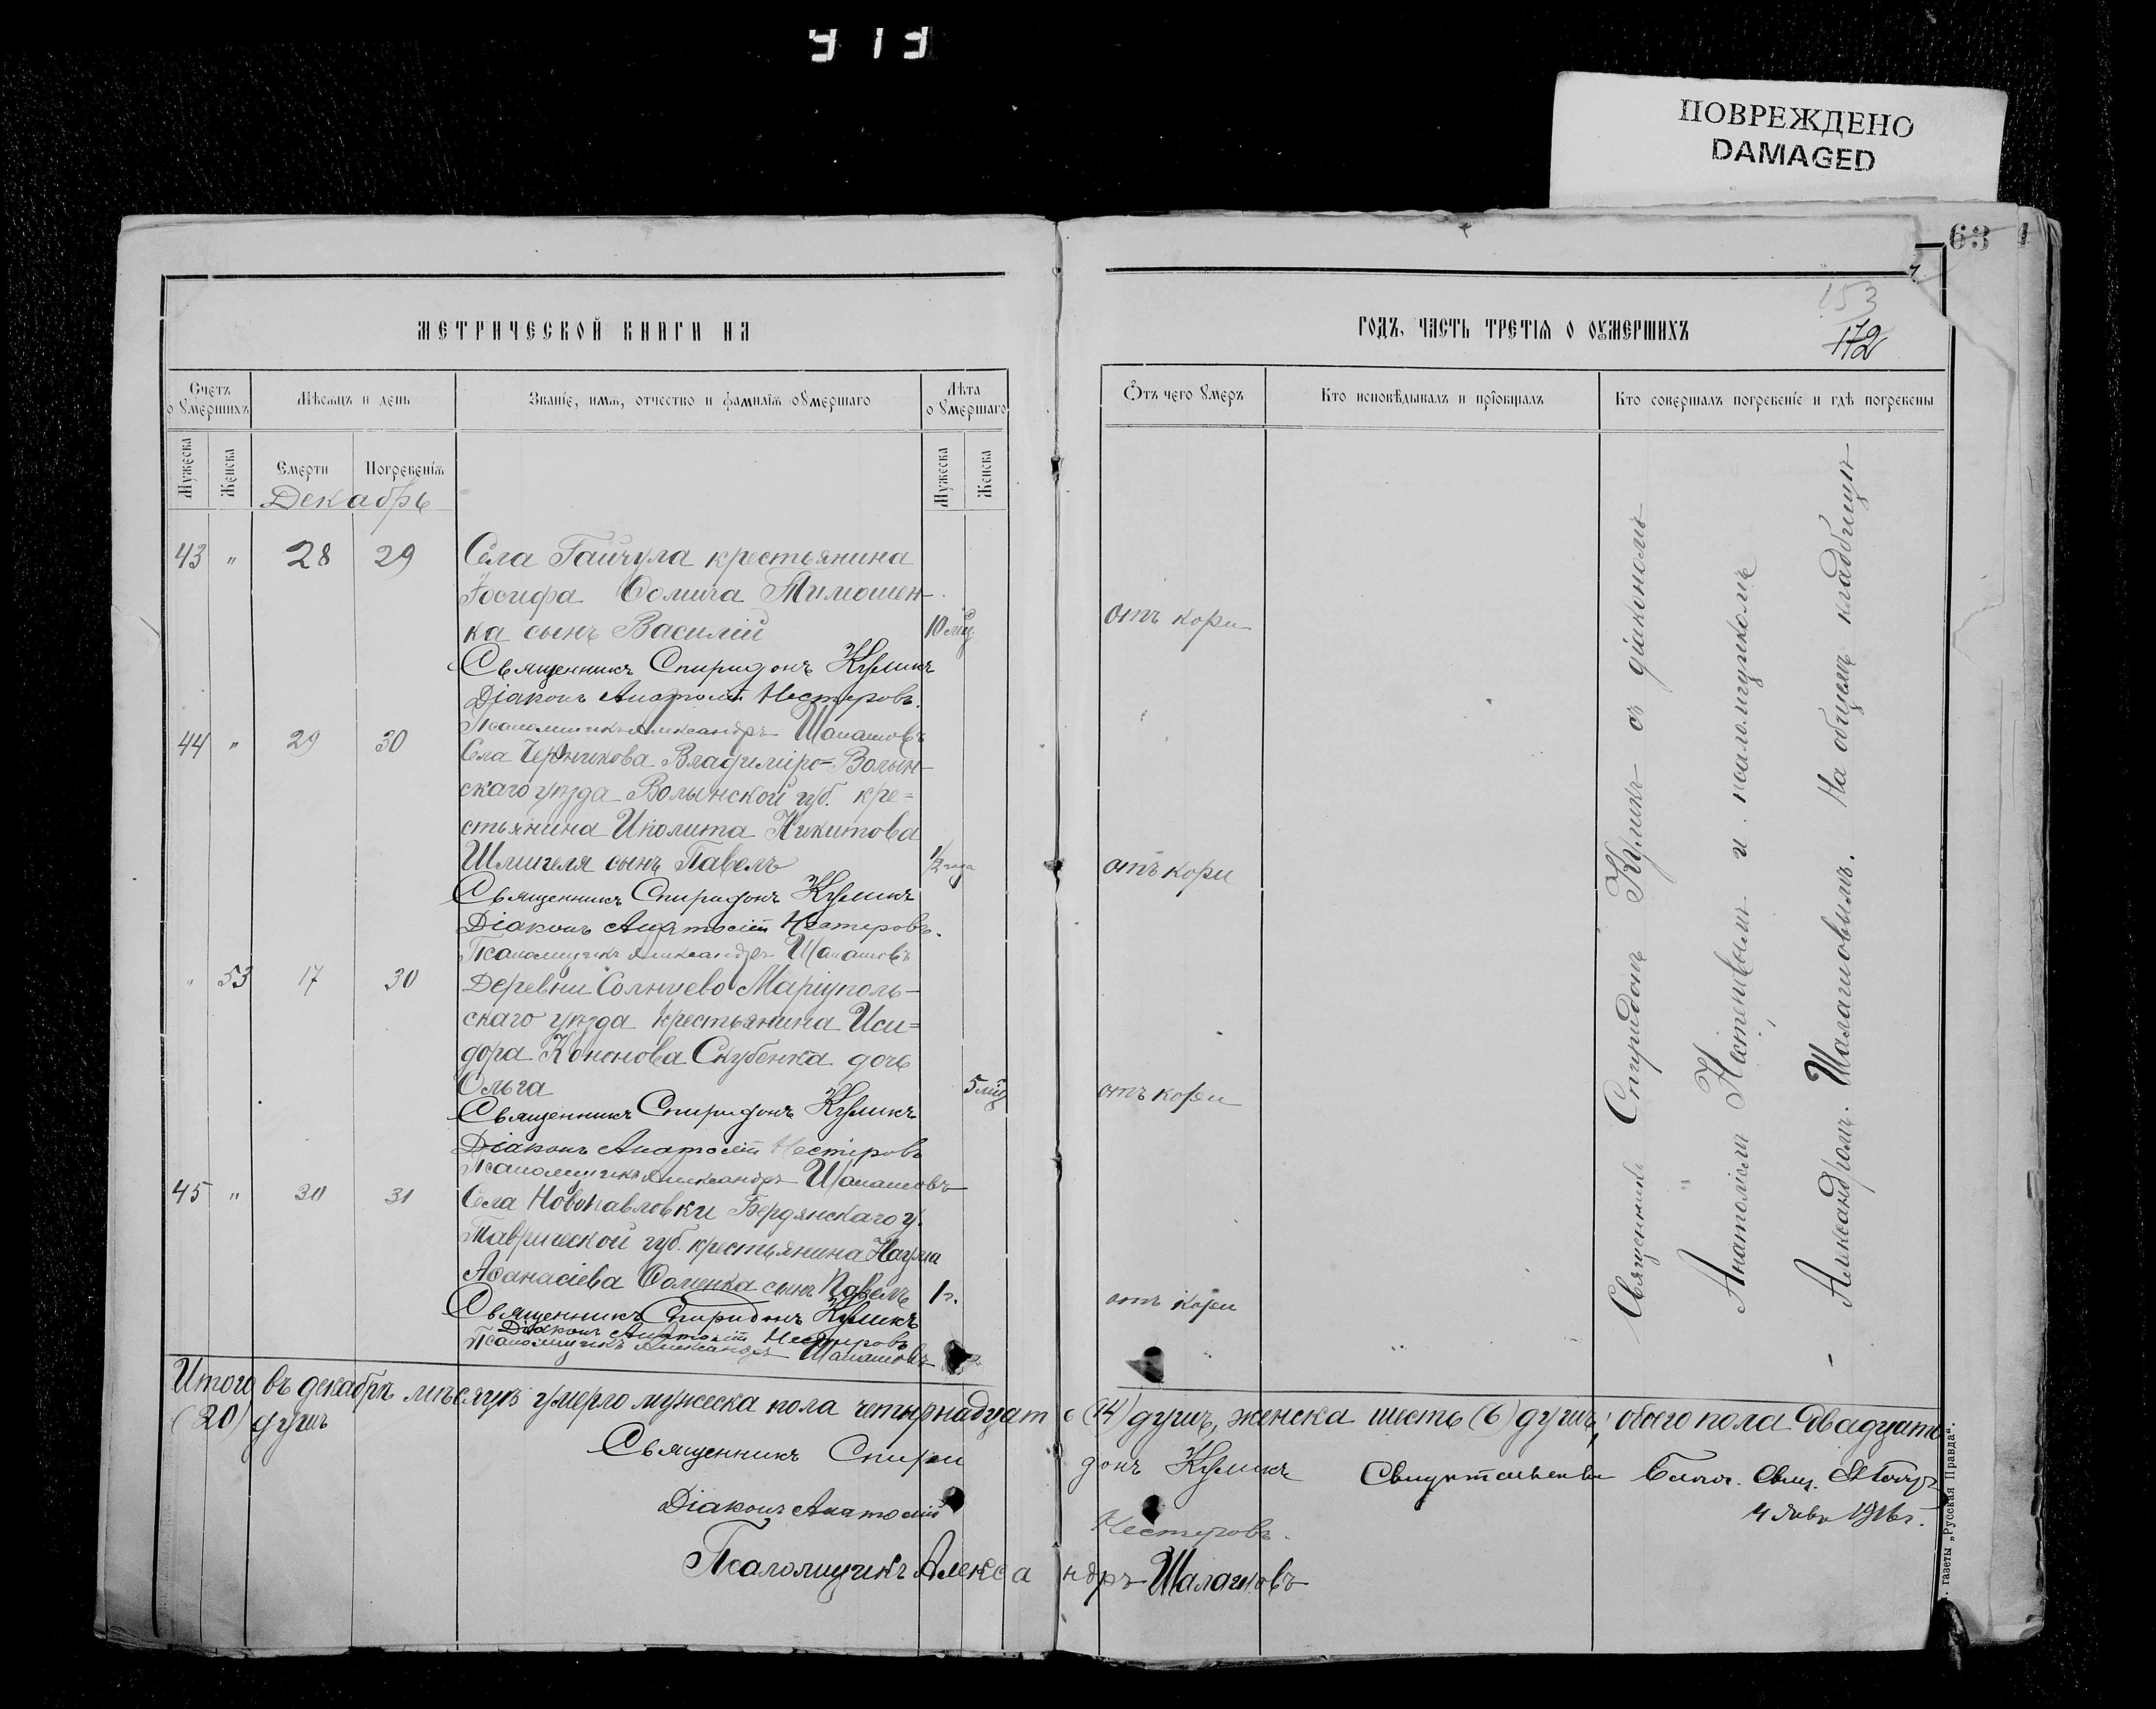 ПОВРЕЖДЕНО
DAMAGED
63
МЕТРИЧЕСКОЙ КНИГИ НА
ГОДЪ, ЧАСТЬ ТРЕТІѦ О ОУМЕРШИХЪ
153
172
Счетъ оумершихъ
Мѣсѧцъ и день
Званіе, имѧ, отчество и фамиліѧ оумершаго
Лѣта оумершаго
Отъ чего умеръ
Кто исповѣдывалъ и пріобщалъ
Кто совершалъ погребеніе и гдѣ погребены
Мужеска
Женска
Смерти
Погребеніѧ
Мужеска
Женска
Декабрь
43 " 28 29 Села Гайчула крестьянина
Іосифа Ѳомича Тимошен-
ка сынъ Василій 10 мц отъ кори
Священникъ Спиридонъ Куликъ
Діаконъ Анатолій Нестеровъ.
Псаломщикъ Александръ Шалашовъ
44 " 29 30
Села Черникова Владиміро=Волын-
скаго уѣзда Волынской губ. кре=
стьянина Иполита Никитова
Шмигеля сынъ Павелъ 1/2 года отъ кори
Священникъ Спиридонъ Куликъ
Діаконъ Анатолій Нестеровъ.
Псаломщикъ Александръ Шалашовъ
" 53 17 30 Деревни Солнцево Маріуполь-
скаго уѣзда крестьянина Иси=
дора Кононова Скубенка дочь
Ольга 5 мц отъ кори
Священникъ Спиридонъ Куликъ
Діаконъ Анатолій Нестеровъ
Псаломщикъ Александръ Шалашовъ
45 " 30 31 Села Новопавловки Бердянскаго у.
Таврической губ. крестьянина Наума
Аѳанасіева Ѳоменка сынъ Павелъ 1 г. отъ кори
Священникъ Спиридонъ Куликъ
Діаконъ Анатолій Нестеровъ
Псаломщикъ Александръ Шалашовъ
Священникъ Спиридонъ Куликъ съ діакономъ
Анатоліемъ Нестеровымъ и псаломщикомъ
Александромъ Шалашовымъ. На общемъ кладбищѣ
Итого въ декабрѣ мѣсяцѣ умерло мужеска пола четырнадцать (14) душъ, женска шесть (6) душъ, обоего пола двадцать
(20) душъ
Священникъ Спиридонъ Куликъ
Діаконъ Анатолій Нестеровъ.
Псаломщикъ Александръ Шалашовъ
Благ. Свящ.
4 Янв. 1916 г.
газеты „Русская Правда“.